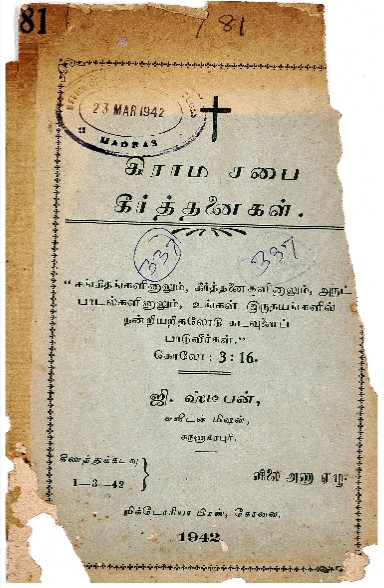 81
/ 81
23 MAR 1942
MADRAS
கிராம சபை
கீர்த்தனைகள்.
337
337
"சங்கீதங்களினாலும், கீர்த்தனைகளினாலும், அருட்
பாடல்களினாலும், உங்கள் இருதயங்களில்
நன்றியறிதலோடு கடவுளைப்
பாடுவீர்கள்."
கொலோ: 3 : 16.
ஜி. ஸ்டீபன்,
சுவீடன் மிஷன்,
கிணத்துக்கடவு
1—3—42
விலை அணா ஏழு.
விக்டோரியா பிரஸ், கோவை.
1942